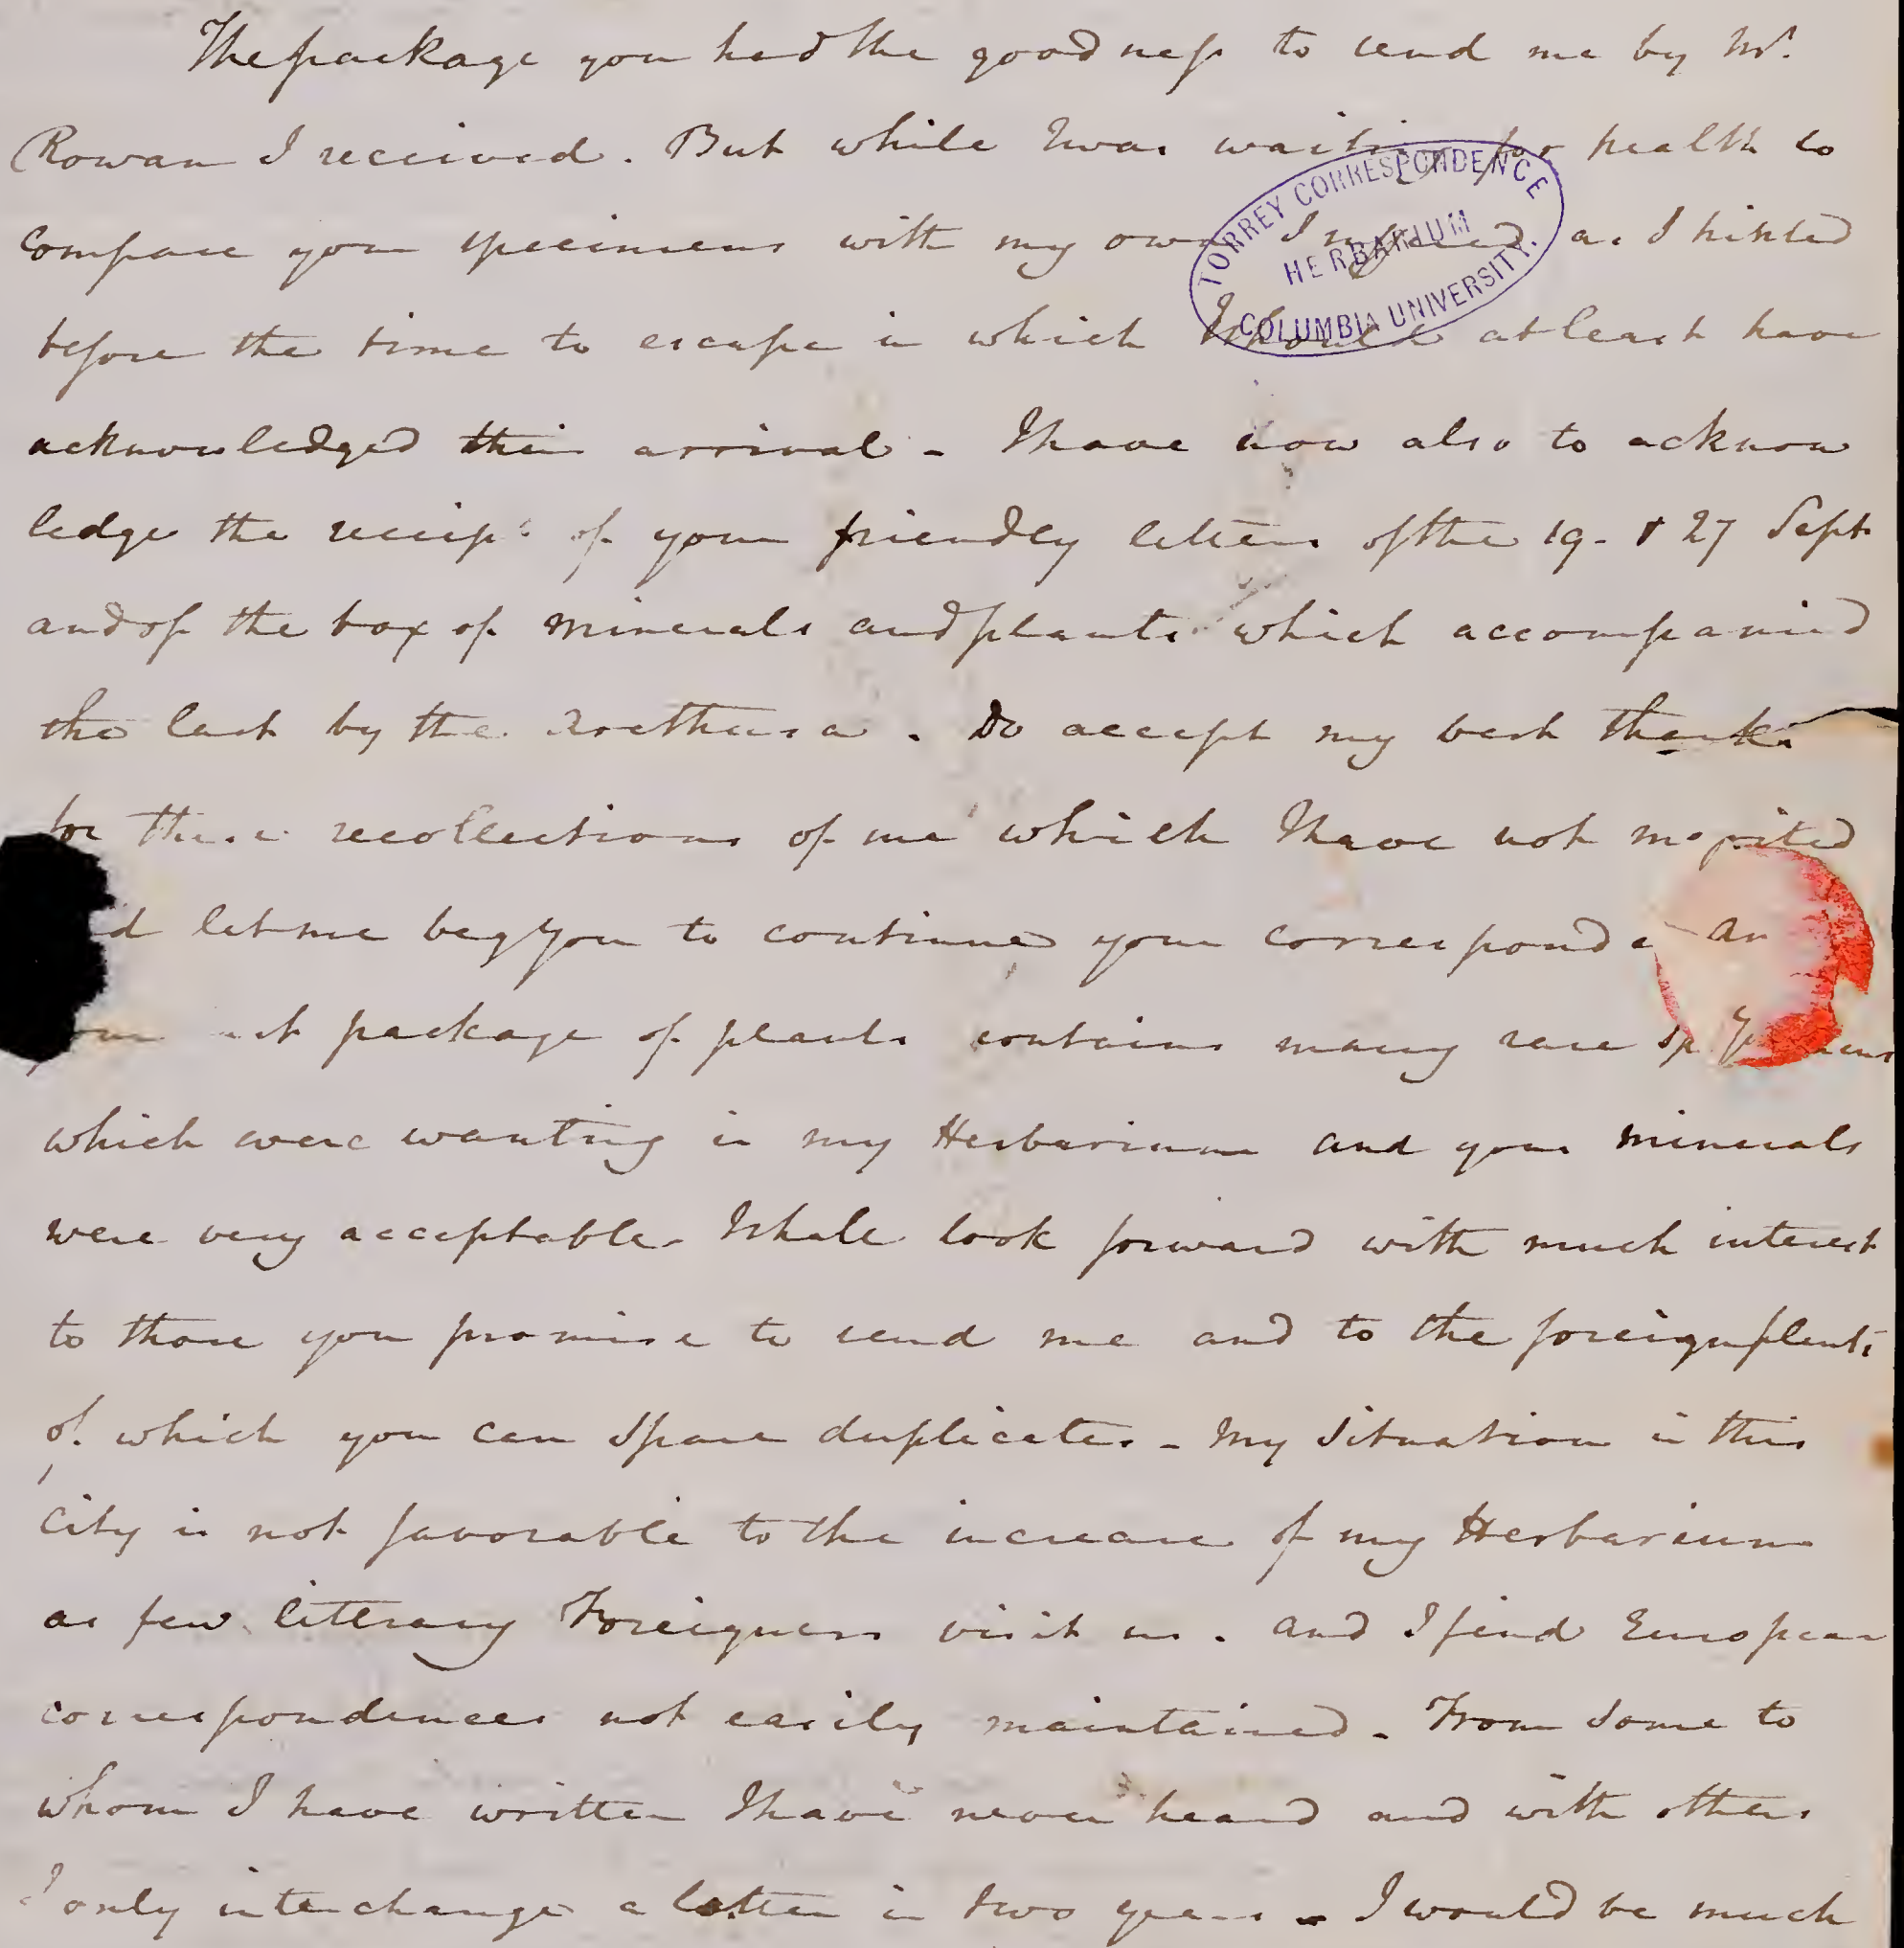 The package you had the goodness to send me by Mr.
Rowan I received. But while I was waiting for health to
compare your specimens with my own I suffered as I hinted
before the time to escape in which I should at least have
acknowledged their arrival - I have now also to acknow
ledge the receipt of your friendly letters of the 19 - & 27 Sept
and of the box of minerals and plants which accompanied
the last by the Arethusa. Do accept my best thanks
for these recollections of me which I have not merited
d let me beg you to continue your
package of plants contains many rare
which were wanting in my Herbarium and your minerals
were very acceptable - I shall look forward with much interest
to those you promise to send me and to the foreign plants
of which you can spare duplicates - My situation in this
City is not favorable to the increase of my Herbarium
as few literary Foreigners visit us. and I find European
correspondences not easily maintained - From some to
whom I have written I have never heard and with others
I only interchange a letter in two years - I would be much
TORREY CORRESPONDENCE
HERBARIUM
COLUMBIA UNIVERSITY.